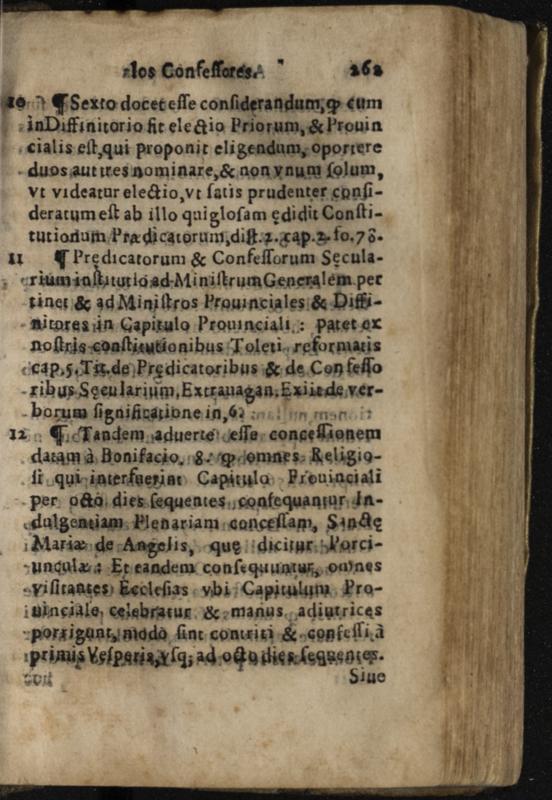 los Confessores. 262
10 ¶ Sexto docet esse considerandum, qp cum
in Diffinitorio fit electio Priorum, & Prouin
cialis est, qui proponit eligendum, oportere
duos aut tres nominare, & non vnum solum,
vt videatur electio, vt satis prudenter consi-
deratum est ab illo qui glosam ędidit Consti-
tutionum Prædicatorum, dist. 2. cap. 2. fo. 78.
11 ¶ Prędicatorum & Confessorum Sęcula-
rium institutio ad Ministrum Generalem per
tinet & ad Ministros Prouinciales & Diffi-
nitores in Capitulo Prouinciali : patet ex
nostris constitutionibus Toleti reformatis
cap. 5. Tit. de Prędicatoribus & de Confesso
ribus Sęcularium, Extrauagan. Exiit de ver-
borum significatione in, 6.
12 ¶ Tandem aduerte esse concessionem
datam à Bonifacio. 8. qp omnes Religio-
si qui interfuerint Capitulo Prouinciali
per octo dies sequentes consequantur In-
dulgentiam Plenariam concessam, Sanctę
Mariæ de Angelis, quę dicitur Porci-
unculæ : Et eandem consequuntur, omnes
visitantes Ecclesias vbi Capitulum Pro-
uinciale celebratur & manus adiutrices
porrigunt, modo sint contriti & confessi à
primis Vesperis, vsq; ad octo dies sequentes.
Siue